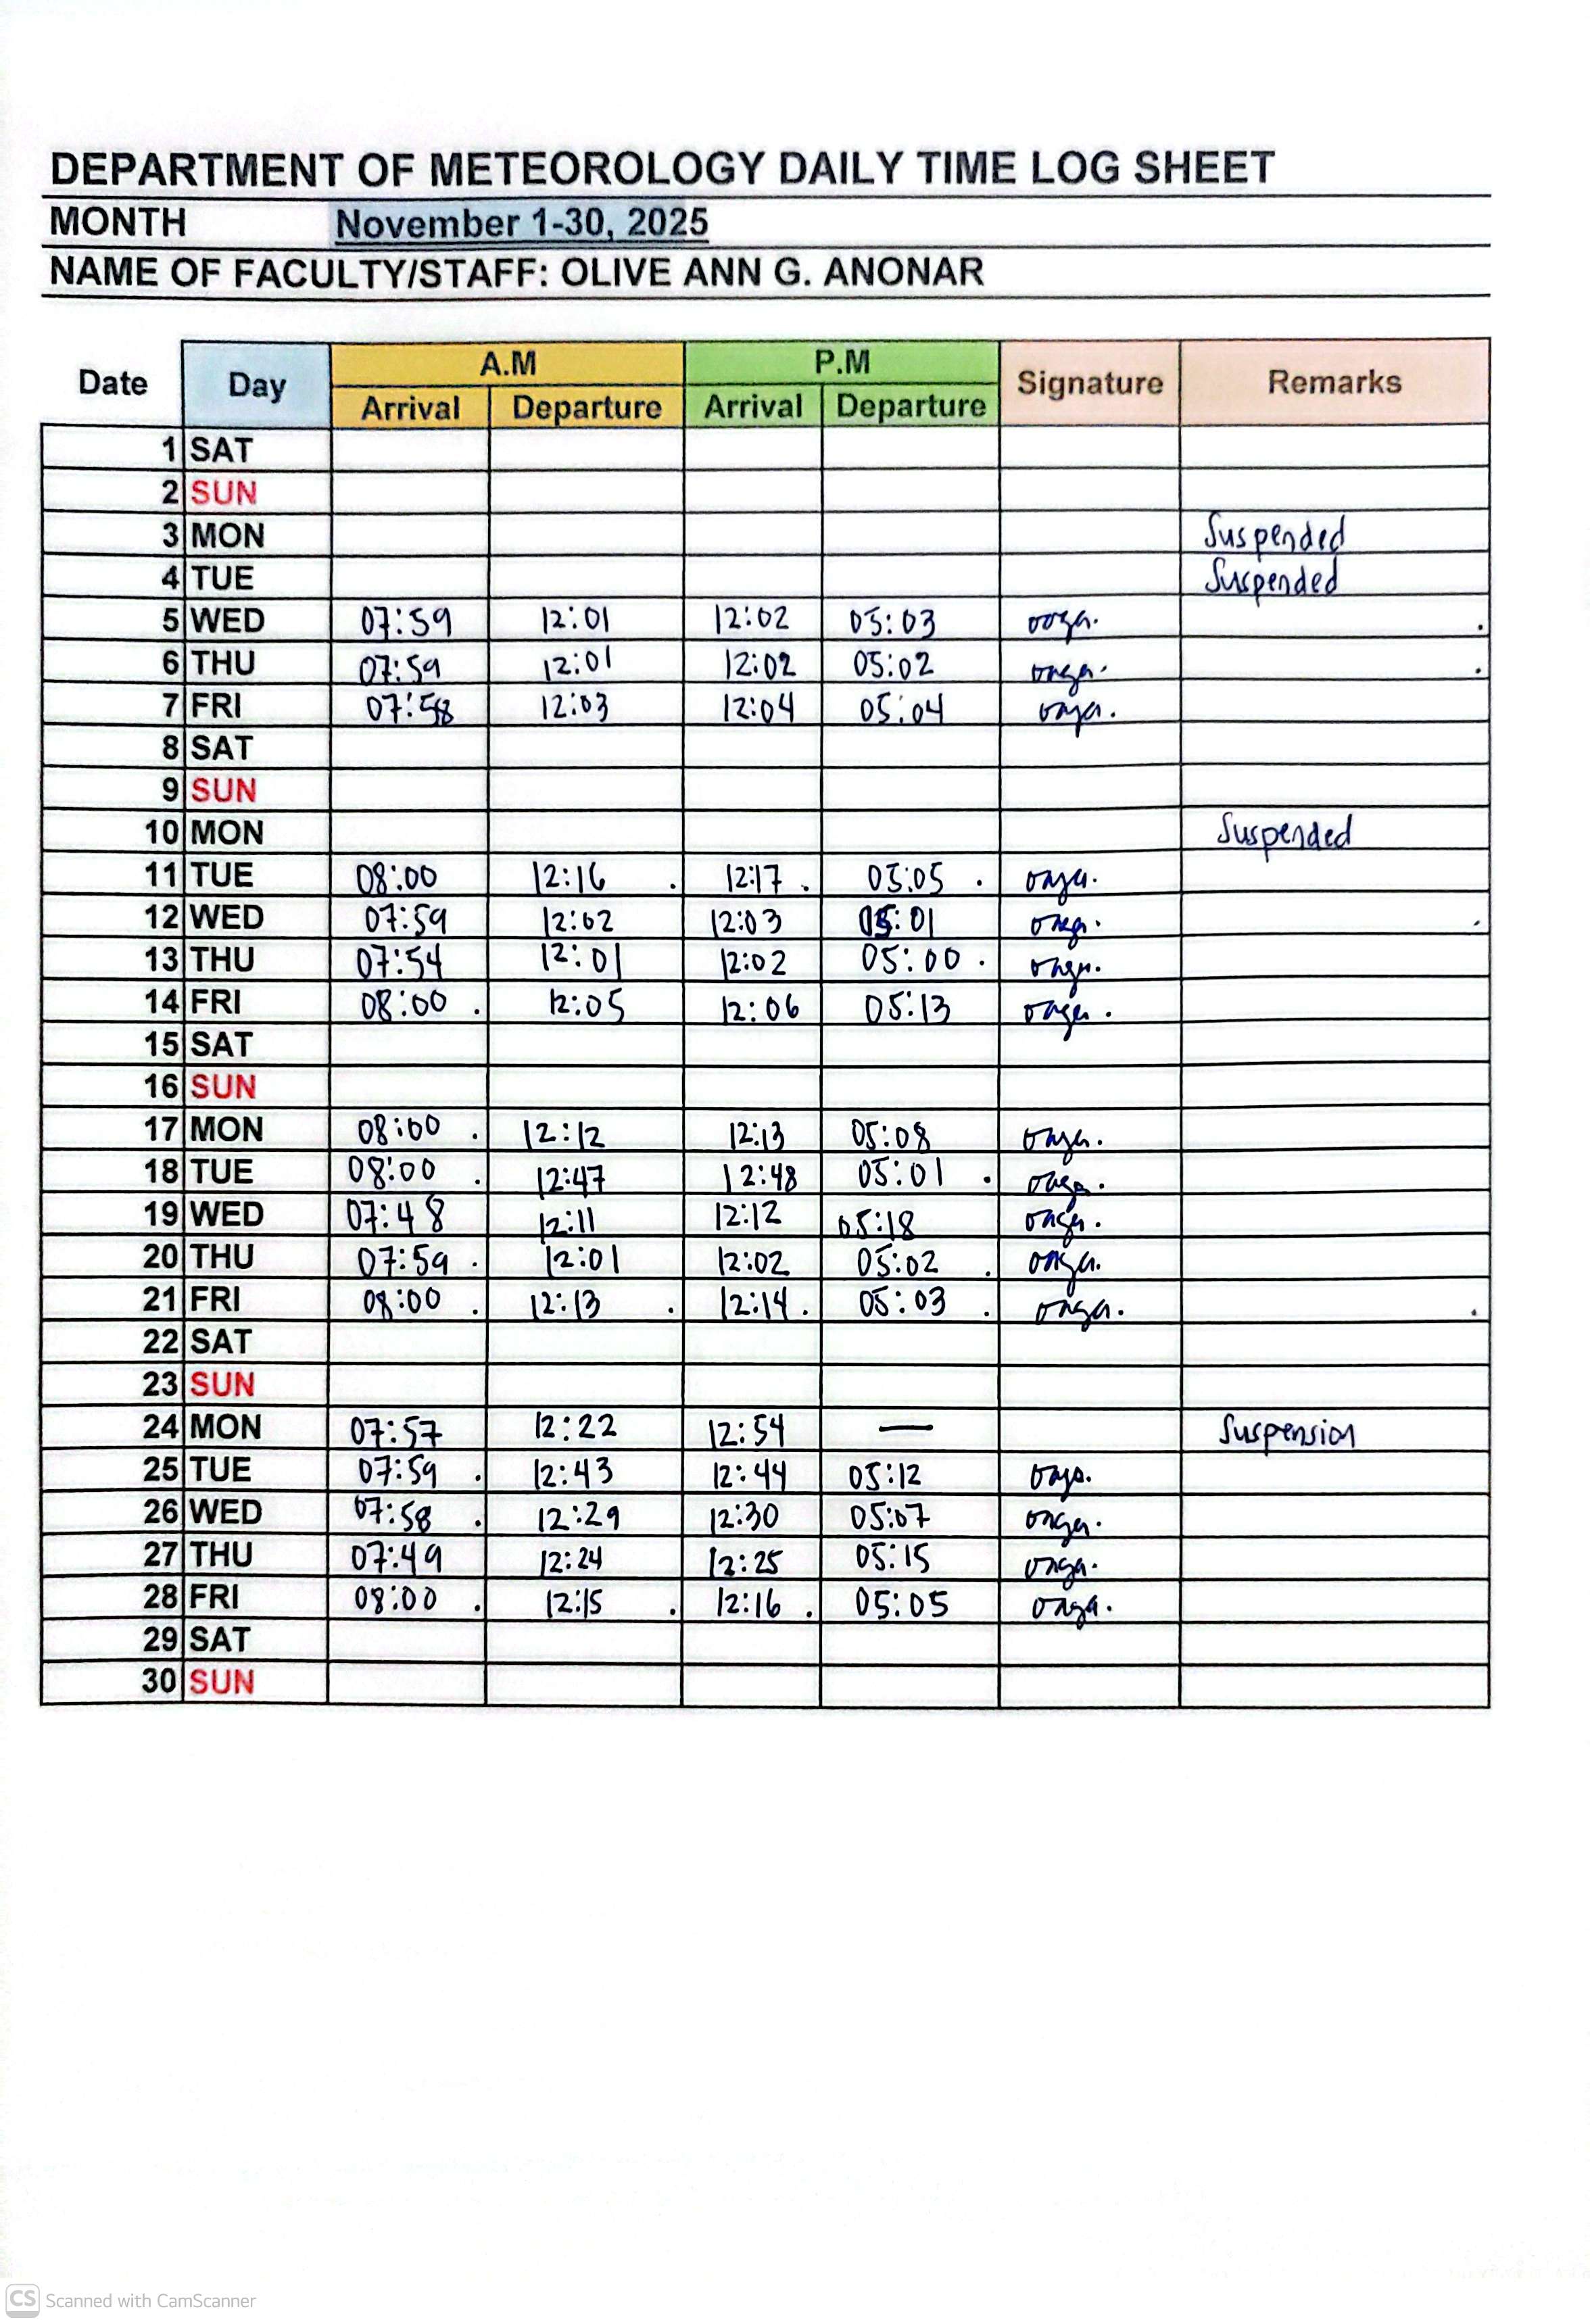 DEPARTMENT OF METEOROLOGY DAILY TIME LOG SHEET
MONTH November 1-30, 2025
NAME OF FACULTY/STAFF: OLIVE ANN G. ANONAR
Date Day A.M P.M Signature Remarks
Arrival Departure Arrival Departure
1 SAT
2 SUN
3 MON Suspended
4 TUE Suspended
5 WED 07:59 12:01 12:02 05:03
6 THU 07:59 12:01 12:02 05:02
7 FRI 07:58 12:03 12:04 05:04
8 SAT
9 SUN
10 MON Suspended
11 TUE 08:00 12:16 12:17 05:05
12 WED 07:59 12:02 12:03 05:01
13 THU 07:54 12:01 12:02 05:00
14 FRI 08:00 12:05 12:06 05:13
15 SAT
16 SUN
17 MON 08:00 12:12 12:13 05:08
18 TUE 08:00 12:47 12:48 05:01
19 WED 07:48 12:11 12:12 05:18
20 THU 07:59 12:01 12:02 05:02
21 FRI 08:00 12:13 12:14 05:03
22 SAT
23 SUN
24 MON 07:57 12:22 12:54 — Suspension
25 TUE 07:59 12:43 12:44 05:12
26 WED 07:58 12:29 12:30 05:07
27 THU 07:49 12:24 12:25 05:15
28 FRI 08:00 12:15 12:16 05:05
29 SAT
30 SUN
CS Scanned with CamScanner